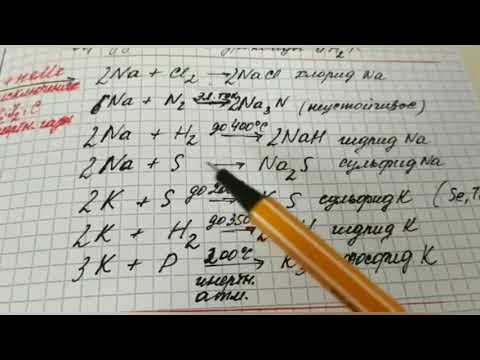 + неМе
исключение
2Na + Cl₂ → 2NaCl хлорид Na
6Na + N₂ эл.ток→ 2Na₃N (неустойчивое)
2Na + H₂ до 400°C→ 2NaH гидрид Na
2Na + S → Na₂S сульфид Na
2K + S до 20 → K S сульфид K (Se, T
2K + H₂ до 350 → 2 H гидрид K
3K + P 200°C→ K фосфид K
инертн.
атм.